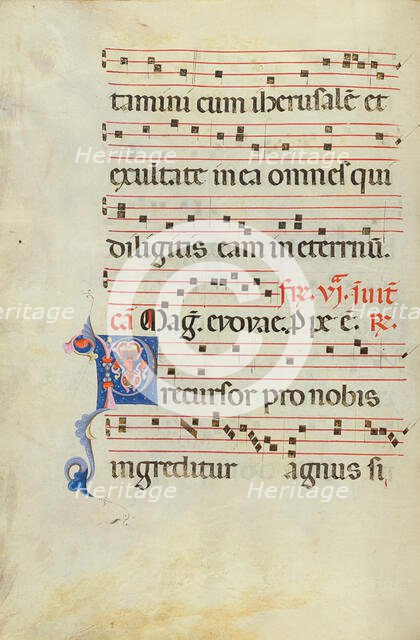 tamini cum iherusalē et
exultate in ea omnes qui
diligitis eam in eternū.
fr. vj. inīt
eā Mag. evovae. p̄ pxē. R.
Precursor pro nobis
ingreditur agnus si
Heritage Heritage
Heritage Heritage
Heritage Heritage
Heritage Heritage